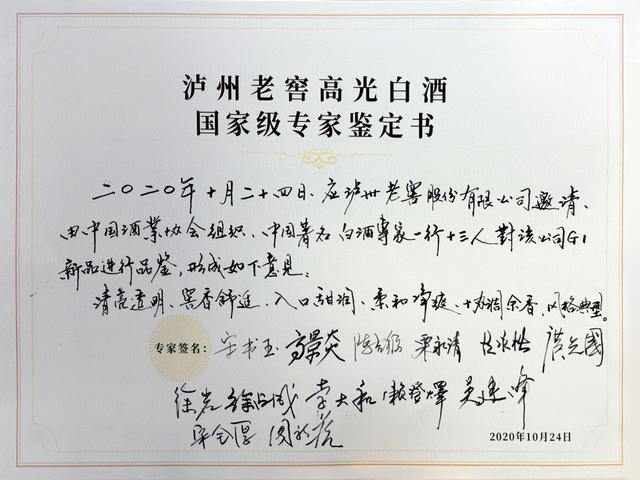 泸州老窖高光白酒
国家级专家鉴定书
二〇二〇年十月二十四日、应泸州老窖股份有限公司邀请、
由中国酒业协会组织、中国著名白酒专家一行十三人對该公司G1
新品进行品鉴，形成如下意见：
清亮透明、窖香舒适、入口甜润、柔和净爽、协调余香、风格典型。
专家签名：宋书玉 高景炎 栗永清
徐岩 李大和 赖登燡 吴建峰
2020年10月24日